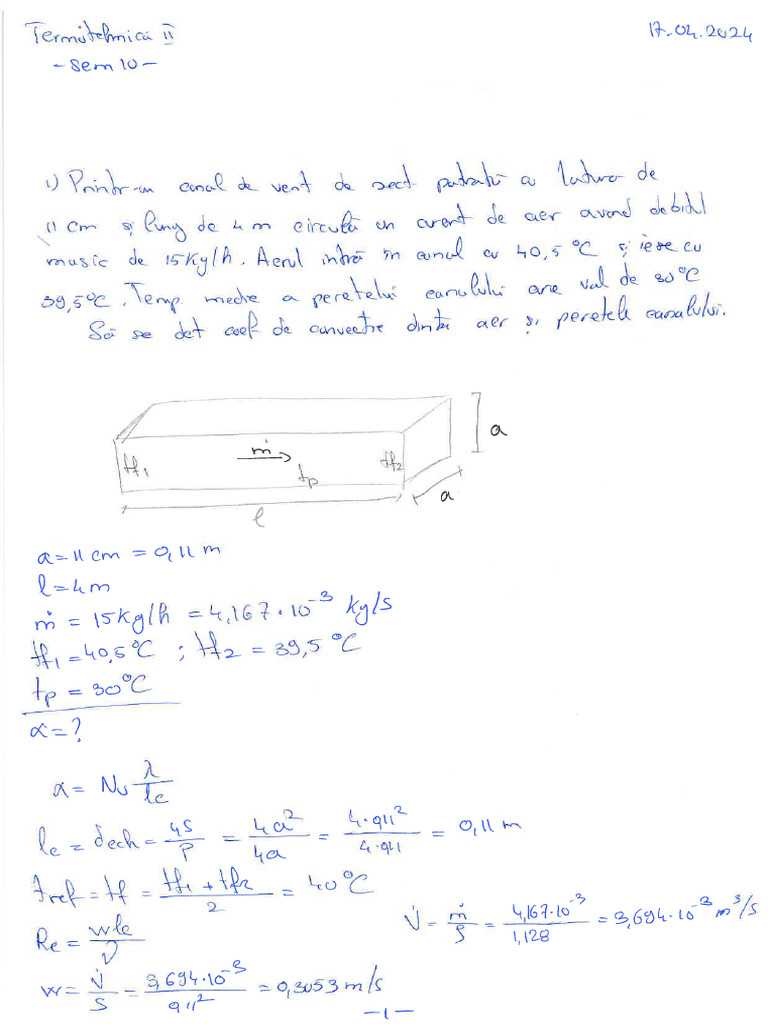 Termotehnică II
17.04.2024
- Sem 10 -
1) Printr-un canal de vent de sect patrată cu latura de
11 cm și lung de 4 m circulă un curent de aer având debitul
masic de 15Kg/h. Aerul intră în canal cu 40,5 °C și iese cu
39,5°C. Temp medie a peretelui canalului are val de 30°C
Să se det coef de convecție dintre aer și peretele canalului.
a
tf1 ṁ tf2
tp
a
l
a = 11 cm = 0,11 m
l = 4 m
ṁ = 15 kg/h = 4,167·10⁻³ kg/s
tf1 = 40,5°C ; tf2 = 39,5 °C
tp = 30°C
α = ?
α = Nu λ/lc
lc = dech = 4S/P = 4a²/4a = 4·0,11²/4·0,11 = 0,11 m
tref = tf = (tf1 + tf2)/2 = 40°C
Re = wlc/ν
V̇ = ṁ/ρ = 4,167·10⁻³/1,128 = 3,694·10⁻³ m³/s
w = V̇/S = 3,694·10⁻³/0,11² = 0,3053 m/s
-1-